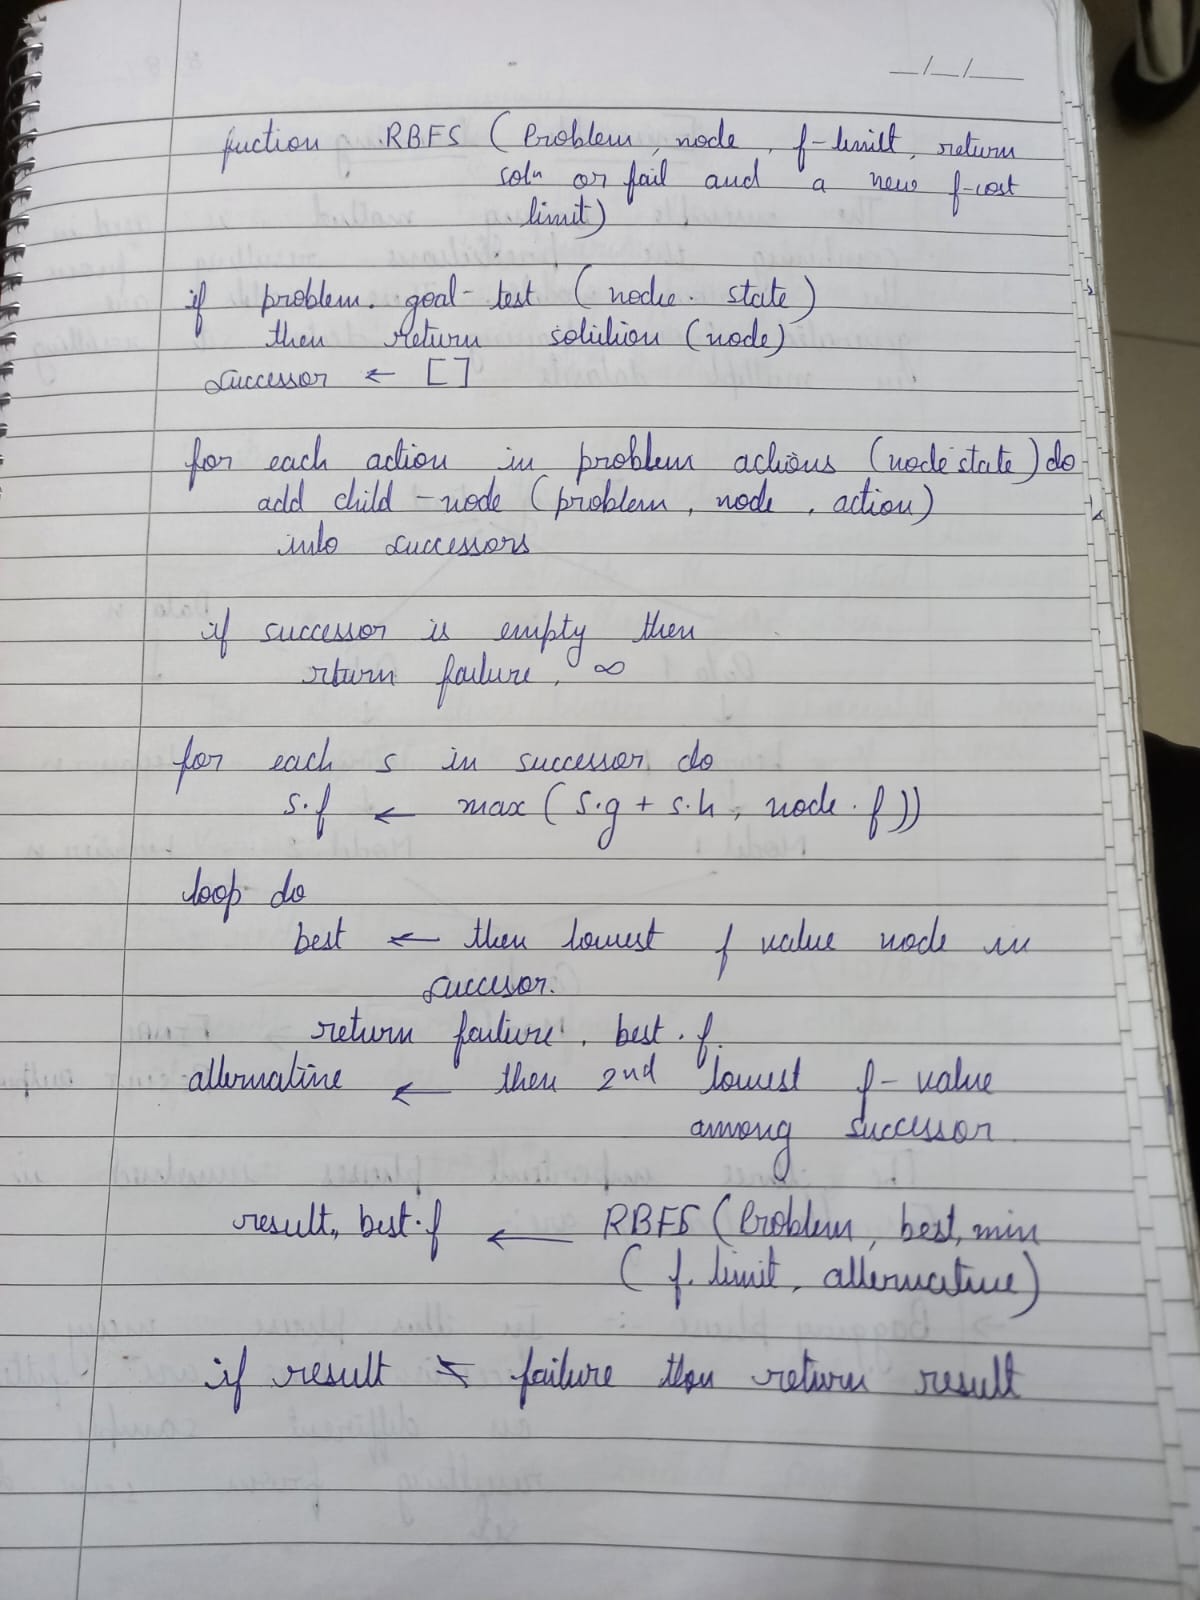 __/__/____
fuction RBFS (Problem, node, f-limilt, return
soln or fail and a new f-cost
limit)
if problem. goal-test (node. state)
then return solution (node)
successor ← []
for each action in problem actions (node state) do
add child-node (problem, node, action)
into successors
if successor is empty then
rturn failure, ∞
for each s in successor do
s.f ← max (s.g + s.h, node.f))
loop do
best ← then lowest f value node in
succesor.
return failure, best.f.
alternative ← then 2nd lowest f-value
among successor
result, best.f ← RBFS (Problem, best, min
(f. limit, alternative)
if result ≠ failure then return result